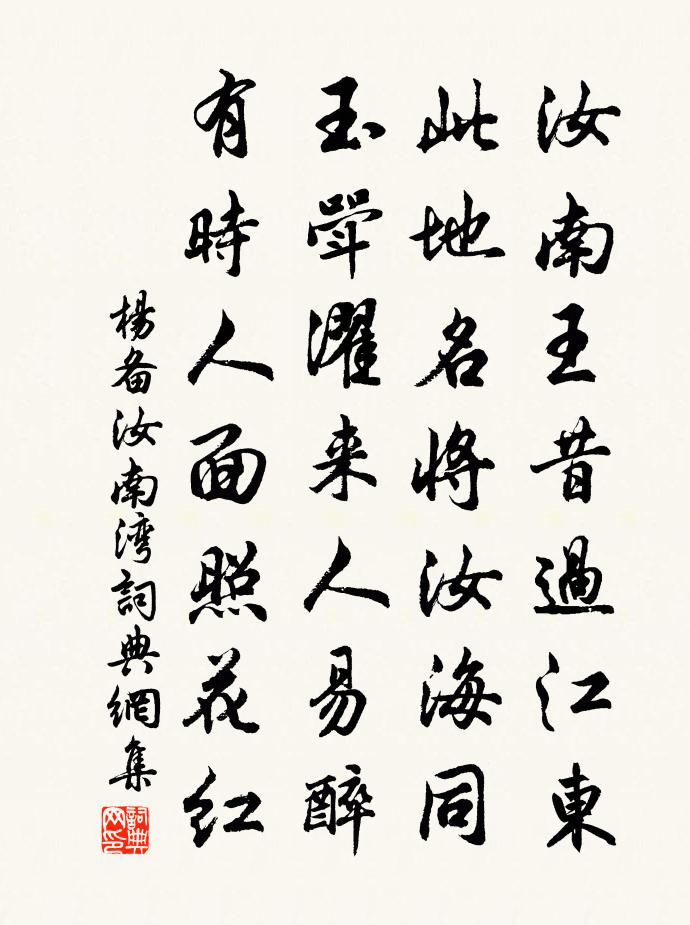 汝南王昔過江東
此地名将汝海同
玉斝濯来人易醉
有時人面照花红
楊备汝南湾詞典網集
詞典网印